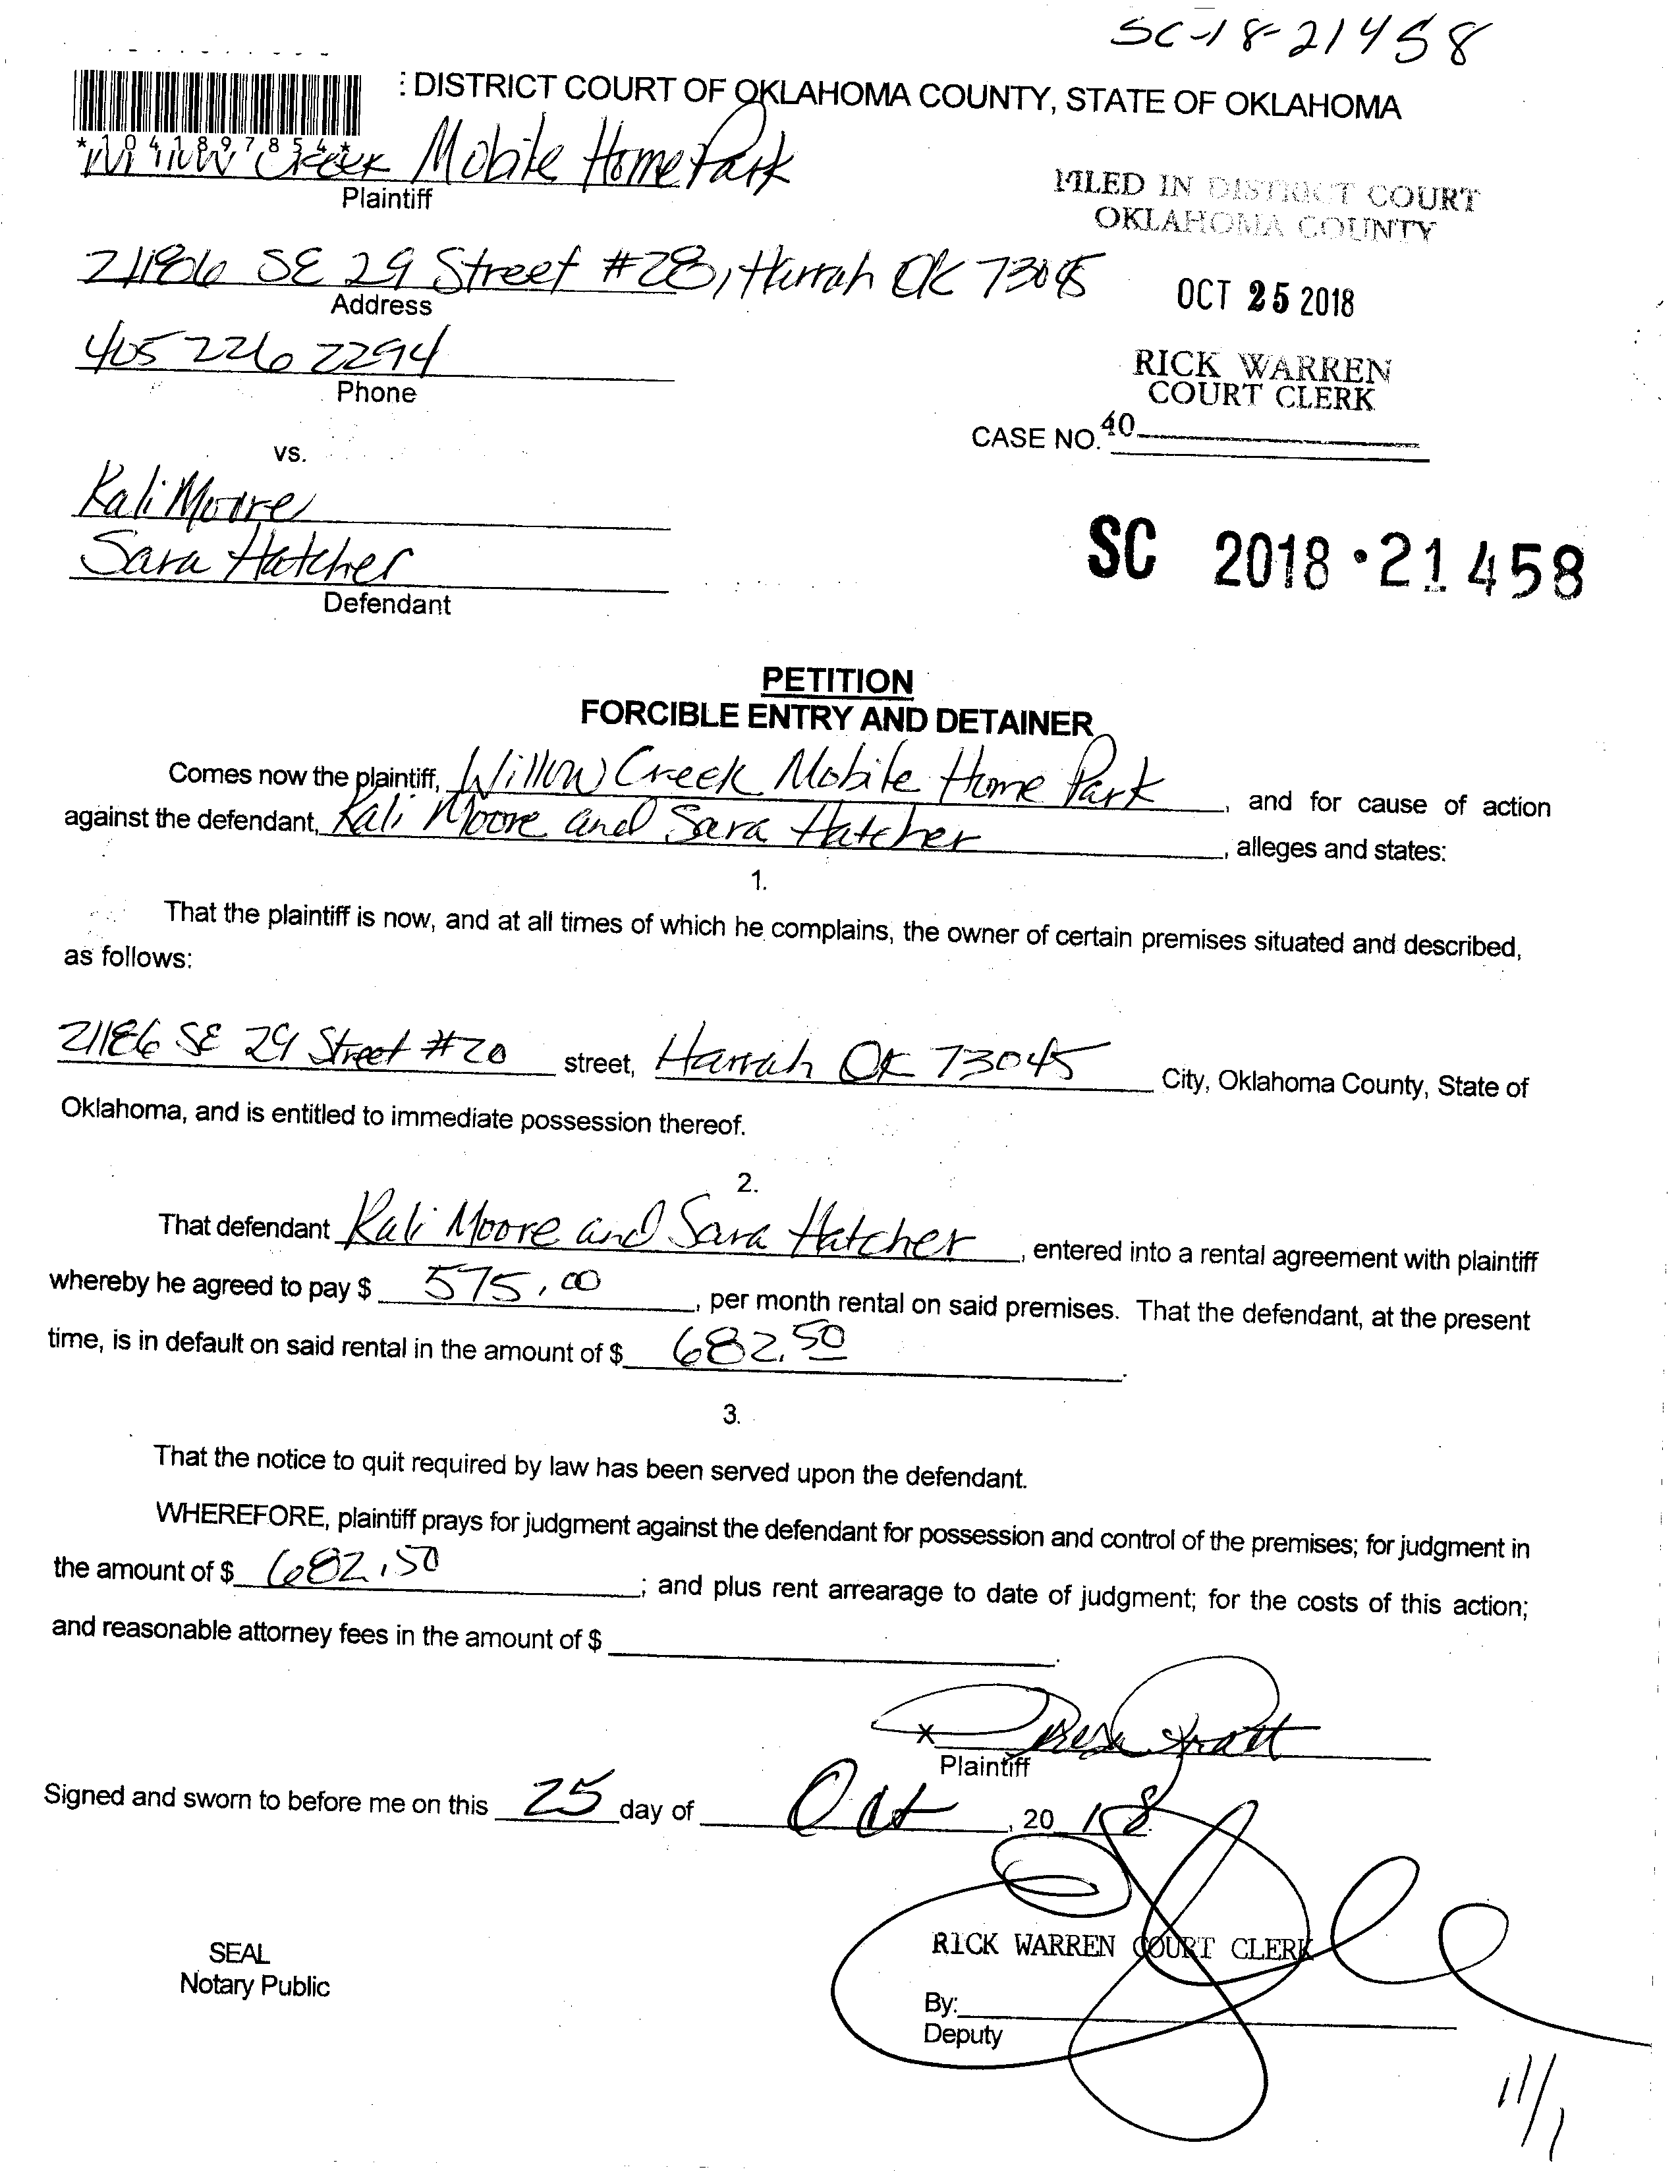 SC-18-21458
: DISTRICT COURT OF OKLAHOMA COUNTY, STATE OF OKLAHOMA
*1041897854*
Willow Creek Mobile Home Park
Plaintiff
FILED IN DISTRICT COURT
OKLAHOMA COUNTY
21186 SE 29 Street #28, Harrah OK 73045
Address
OCT 25 2018
405 226 2294
Phone
RICK WARREN
COURT CLERK
CASE NO. 40
vs.
Kali Moore
Sara Hatcher
Defendant
SC 2018 • 21458
PETITION
FORCIBLE ENTRY AND DETAINER
Comes now the plaintiff, Willow Creek Mobile Home Park, and for cause of action
against the defendant, Kali Moore and Sara Hatcher, alleges and states:
1.
That the plaintiff is now, and at all times of which he complains, the owner of certain premises situated and described,
as follows:
21186 SE 29 Street #20 street, Harrah OK 73045 City, Oklahoma County, State of
Oklahoma, and is entitled to immediate possession thereof.
2.
That defendant Kali Moore and Sara Hatcher, entered into a rental agreement with plaintiff
whereby he agreed to pay $ 575.00, per month rental on said premises. That the defendant, at the present
time, is in default on said rental in the amount of $ 682.50.
3.
That the notice to quit required by law has been served upon the defendant.
WHEREFORE, plaintiff prays for judgment against the defendant for possession and control of the premises; for judgment in
the amount of $ 682.50; and plus rent arrearage to date of judgment; for the costs of this action;
and reasonable attorney fees in the amount of $.
X
Plaintiff
Signed and sworn to before me on this 25 day of Oct, 2018
RICK WARREN COURT CLERK
SEAL
Notary Public
By:
Deputy
11/1